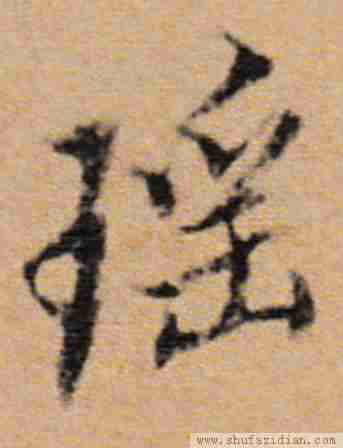 瑶
www.shufazidian.com